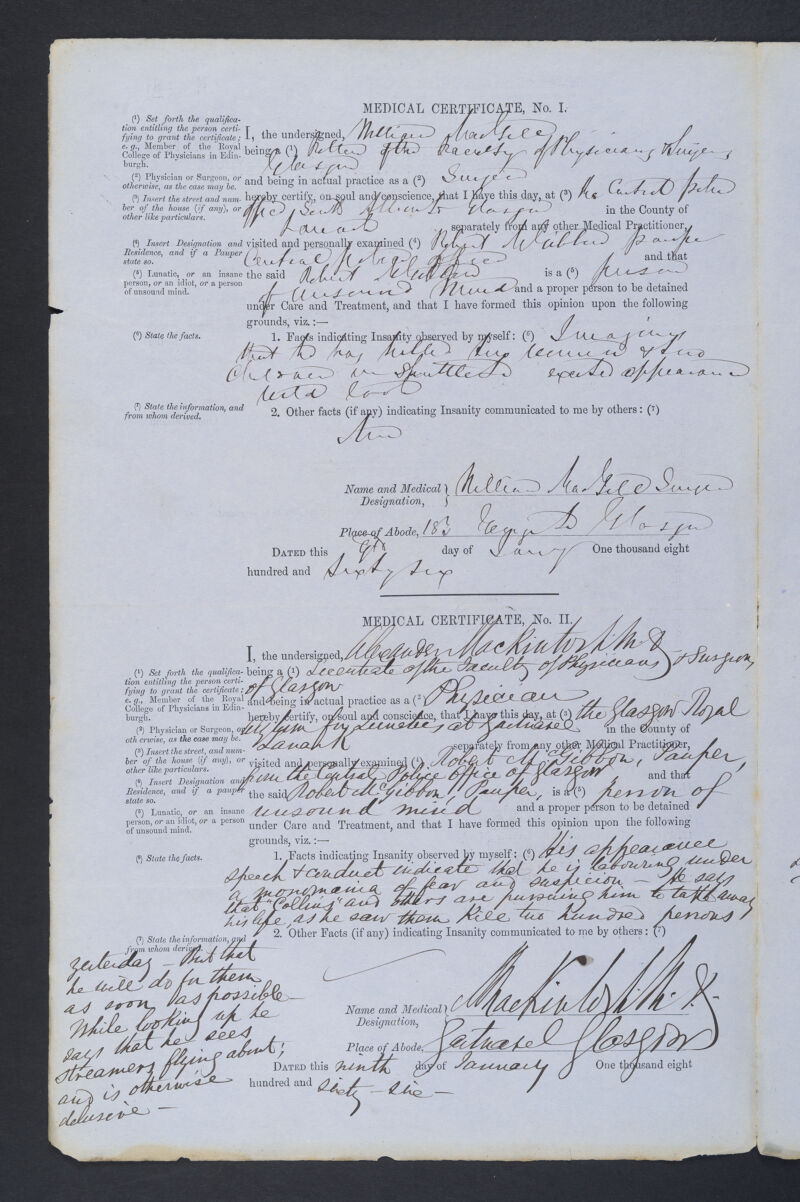 MEDICAL CERTIFICATE, No. I.
(1) Set forth the qualifica-
tion entitling the person certi-
fying to grant the certificate;
e. g., Member of the Royal
College of Physicians in Edin-
burgh.
(2) Physician or Surgeon, or
otherwise, as the case may be.
(3) Insert the street and num-
ber of the house (if any), or
other like particulars.
(4) Insert Designation and
Residence, and if a Pauper
state so.
(5) Lunatic, or an insane
person, or an idiot, or a person
of unsound mind.
(6) State the facts.
(7) State the information, and
from whom derived.
I, the undersigned, William MacGill
being a (1) Fellow of the Faculty of Physicians & Surgeons
Glasgow
and being in actual practice as a (2) Surgeon
hereby certify, on soul and conscience, that I have this day, at (3) the Central Police
Office South Albion St Glasgow in the County of
Lanark separately from any other Medical Practitioner,
visited and personally examined (4) Robert McGibbon pauper
Central Police Office and that
the said Robert McGibbon is a (5) person
of unsound mind and a proper person to be detained
under Care and Treatment, and that I have formed this opinion upon the following
grounds, viz.:—
1. Facts indicating Insanity observed by myself: (6) Imagines
that he has killed two women & two
children in Shuttleston excited appearance
wild look
2. Other facts (if any) indicating Insanity communicated to me by others: (7)
Name and Medical Designation, William MacGill Surgeon
Place of Abode, 183 Glasgow
DATED this 9th day of Jany One thousand eight
hundred and Sixty six
MEDICAL CERTIFICATE, No. II.
(1) Set forth the qualifica-
tion entitling the person certi-
fying to grant the certificate;
e. g., Member of the Royal
College of Physicians in Edin-
burgh.
(2) Physician or Surgeon, or
oth erwise, as the case may be.
(3) Insert the street, and num-
ber of the house (if any), or
other like particulars.
(4) Insert Designation and
Residence, and if a pauper
state so.
(5) Lunatic, or an insane
person, or an idiot, or a person
of unsound mind.
(6) State the facts.
(7) State the information, and
from whom derived.
I, the undersigned, Alexander Mackintosh M.D.
being a (1) Licentiate of the Faculty of Physicians & Surgeons,
of Glasgow
and being in actual practice as a (2) Physician
hereby certify, on soul and conscience, that I have this day, at (3) the Glasgow Royal
Asylum for Lunatics at Gartnavel in the county of
Lanark separately from any other Medical Practitioner,
visited and personally examined (4) Robert McGibbon, Pauper,
from the Central Police Office of Glasgow and that
the said Robert McGibbon, Pauper, is a (5) person of
unsound mind and a proper person to be detained
under Care and Treatment, and that I have formed this opinion upon the following
grounds, viz.:—
1. Facts indicating Insanity observed by myself: (6) His appearance
speech & conduct indicate that he is labouring under
a monomania of fear and suspicion – He says
that "Collins" and others are pursuing him to take away
his life, as he saw them kill two hundred persons
2. Other Facts (if any) indicating Insanity communicated to me by others: (7)
yesterday – But that
he will do for them
as soon as possible –
While looking up he
says that he sees
streamers flying about;
and is otherwise
delusive –
Name and Medical Designation, A Mackintosh M.D.
Place of Abode, Gartnavel Glasgow
DATED this ninth day of January One thousand eight
hundred and sixty – six –